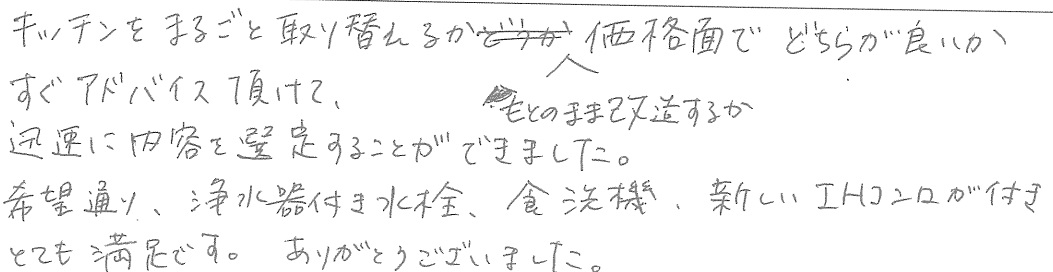 キッチンをまるごと取り替えるかどうか 価格面でどちらが良いか
すぐアドバイス頂けて、
もとのまま改造するか
迅速に内容を選定することができました。
希望通り、浄水器付き水栓、食洗機、新しいIHコンロが付き
とても満足です。 ありがとうございました。